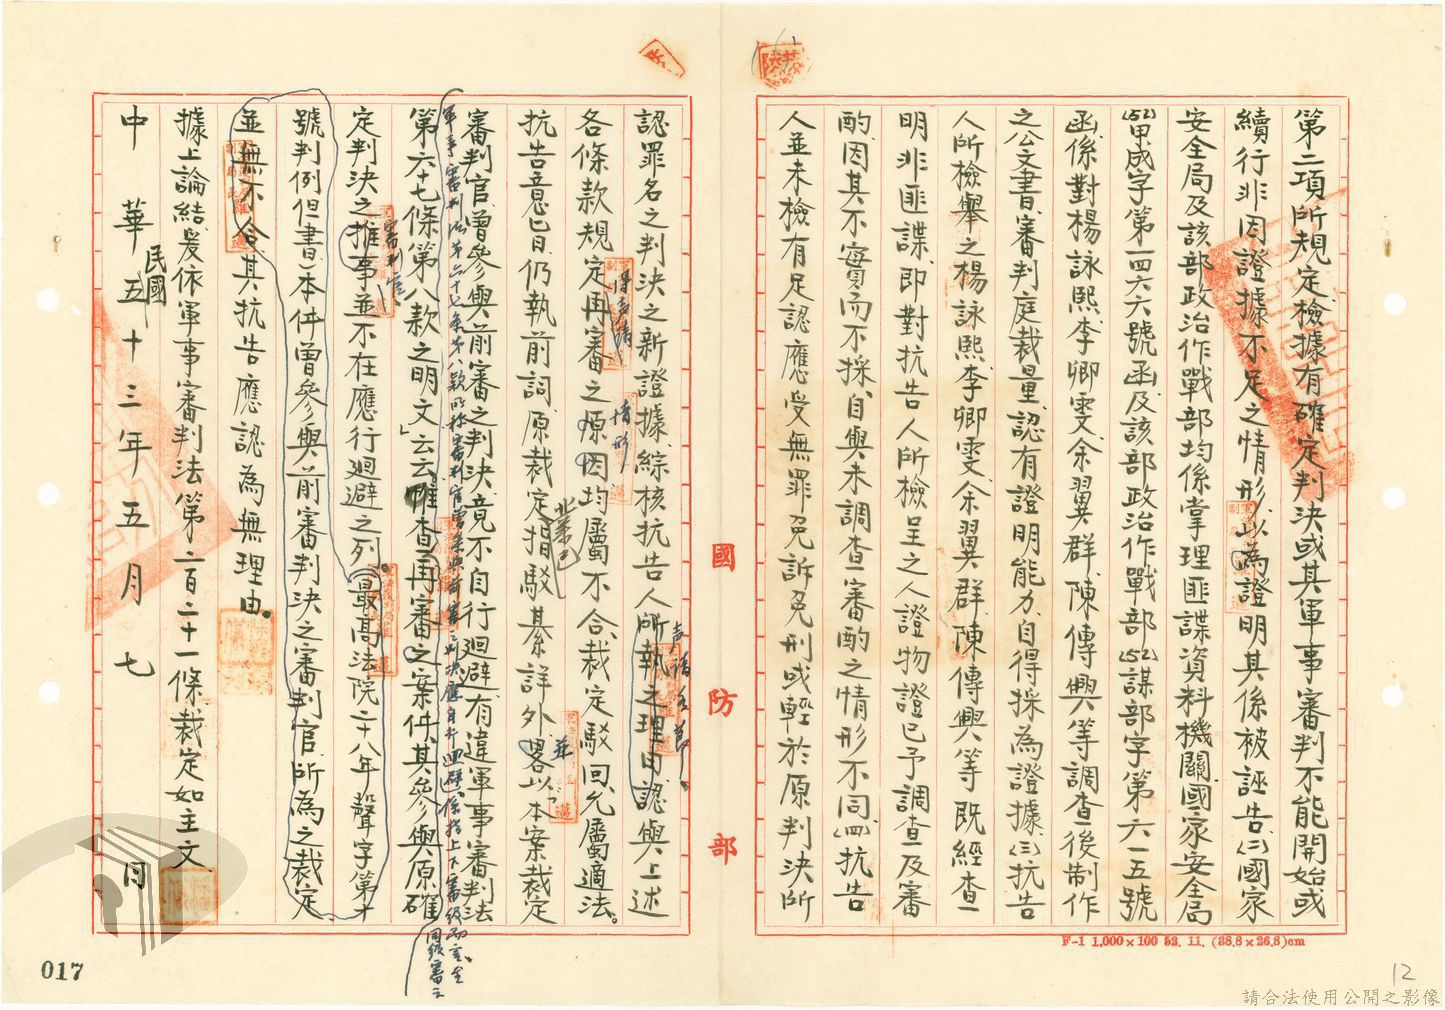 第二項所規定檢據有確定判決或其軍事審判不能開始或
續行非因證據不足之情形以為證明其係被誣告(二)國家
安全局及該部政治作戰部均係掌理匪諜資料機關國家安全局
(52)甲成字第一四六六號函及該部政治作戰部(52)謀部字第六一五號
函係對楊詠熙李卿雯余翼群陳傳興等調查後制作
之公文書審判庭裁量認有證明能力自得採為證據(三)抗告
人所檢舉之楊詠熙李卿雯余翼群陳傳興等既經查
明非匪諜即對抗告人所檢呈之人證物證已予調查及審
酌因其不實而不採自與未調查審酌之情形不同(四)抗告
人並未檢有足認應受無罪免訴免刑或輕於原判決所
國防部
F-1 1,000×100 52. 11. (38.8×26.8)cm
12
認罪名之判決之新證據綜核抗告人所執之理由認與上述
声請各節
各條款規定再審之原因均屬不合裁定駁回允屬適法。
得声請
情形
抗告意旨仍執前詞原裁定指駁綦詳外畧以本案裁定
業已
並
審判官曾參與前審之判決竟不自行廻避有違軍事審判法
軍事審判法第六十七條第八款所称審判官曾參與前審之判決應自行廻避係指上下審級而言至同級審之
第六十七條第八款之明文」云云惟查再審之案件其參與原確
定判決之推事並不在應行廻避之列(最高法院二十八年聲字第十
審判官
號判例但書)本件曾參與前審判決之審判官所為之裁定
並無不合其抗告應認為無理由。
據上論結爰依軍事審判法第二百二十一條裁定如主文
中華民國五十三年五月七日
017
請合法使用公開之影像